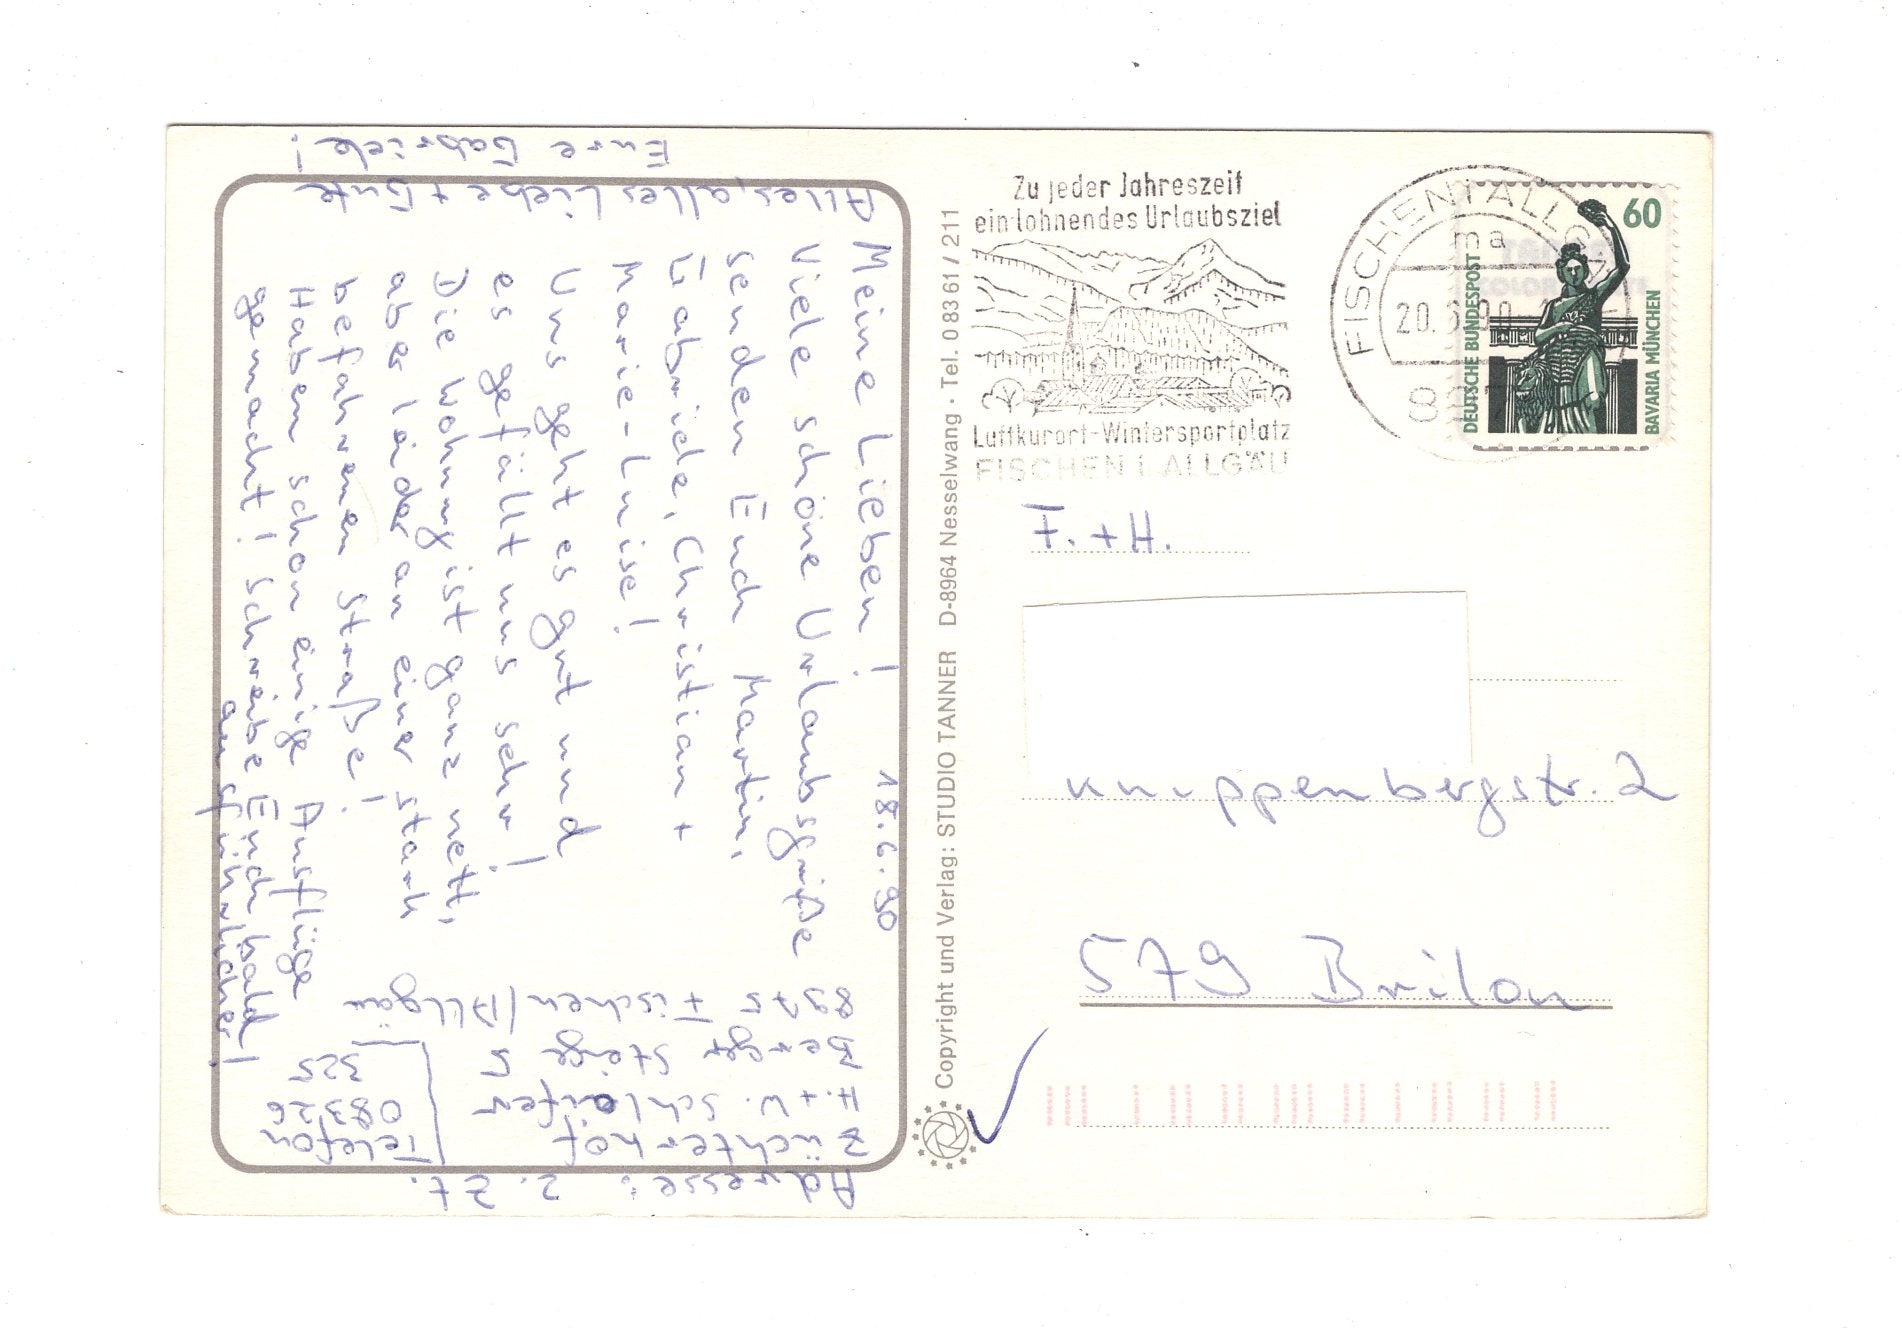 18.6.90
Meine Lieben!
Viele schöne Urlaubsgrüße
senden Euch Martin,
Gabriele, Christian +
Marie-Luise!
Uns geht es gut und
es gefällt uns sehr!
Die Wohnung ist ganz nett,
aber leider an einer stark
befahrenen Straße!
Haben schon einige Ausflüge
gemacht! Schreibe Euch bald
ausführlicher!
Alles, alles Liebe + Gute
Eure Gabriele!
Adresse: z. Zt.
Züchterhof
F. + U. Schleifer
Berger Steige 5
8975 Fischen/Allgäu
Telefon
08326
325
Copyright und Verlag: STUDIO TANNER D-8964 Nesselwang · Tel. 0 83 61 / 211
Zu jeder Jahreszeit
ein lohnendes Urlaubsziel
Luftkurort-Wintersportplatz
FISCHEN I. ALLGÄU
FISCHEN I ALLG
ma
20.
60
DEUTSCHE BUNDESPOST
BAVARIA MÜNCHEN
F. + H.
Knippenbergstr. 2
579 Brilon